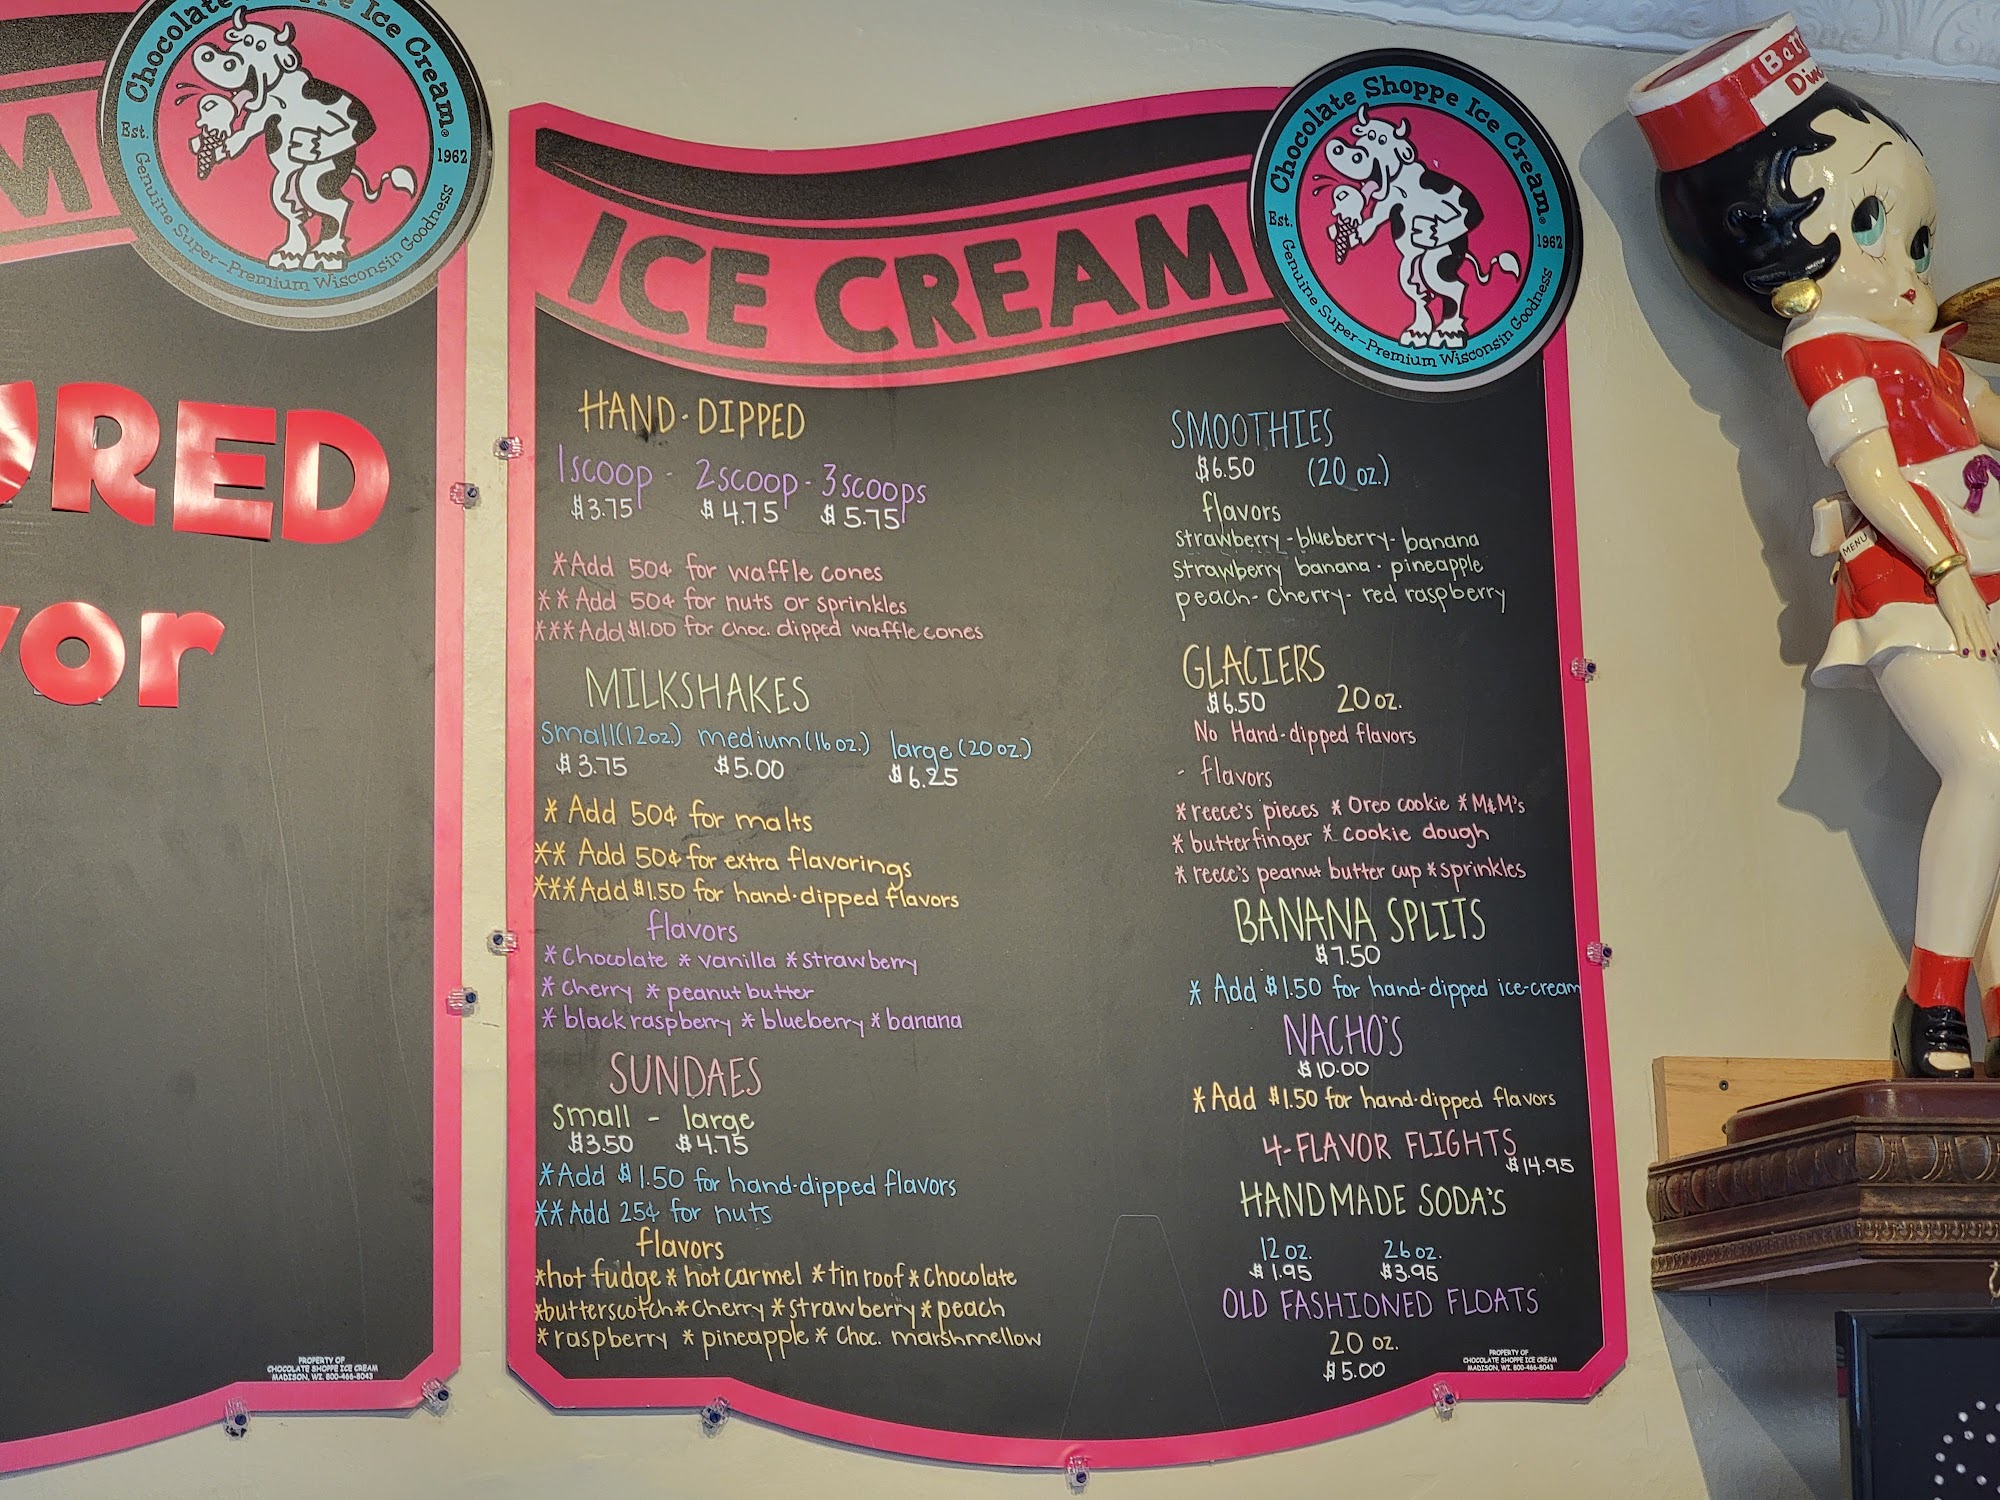 Chocolate Shoppe Ice Cream®
Est. 1962
Genuine Super-Premium Wisconsin Goodness
RED
PROPERTY OF
CHOCOLATE SHOPPE ICE CREAM
MADISON, WI. 800-466-8043
Chocolate Shoppe Ice Cream®
Est. 1962
Genuine Super-Premium Wisconsin Goodness
ICE CREAM
HAND-DIPPED
1scoop - 2scoop - 3scoops
$3.75 $4.75 $5.75
*Add 50¢ for waffle cones
**Add 50¢ for nuts or sprinkles
***Add $1.00 for choc. dipped waffle cones
MILKSHAKES
small(12oz.) medium(16oz.) large(20oz.)
$3.75 $5.00 $6.25
* Add 50¢ for malts
** Add 50¢ for extra flavorings
***Add $1.50 for hand-dipped flavors
flavors
*chocolate *vanilla *strawberry
*cherry *peanut butter
*black raspberry *blueberry *banana
SUNDAES
small - large
$3.50 $4.75
*Add $1.50 for hand-dipped flavors
**Add 25¢ for nuts
flavors
*hot fudge *hot carmel *tin roof *chocolate
*butterscotch *cherry *strawberry *peach
*raspberry *pineapple *choc. marshmellow
SMOOTHIES
$6.50 (20 oz.)
flavors
strawberry - blueberry - banana
strawberry banana - pineapple
peach - cherry - red raspberry
GLACIERS
$6.50 20 oz.
No Hand-dipped flavors
- flavors
*reece's pieces *Oreo cookie *M&M's
*butterfinger *cookie dough
*reece's peanut butter cup *sprinkles
BANANA SPLITS
$7.50
* Add $1.50 for hand-dipped ice-cream
NACHO'S
$10.00
*Add $1.50 for hand-dipped flavors
4-FLAVOR FLIGHTS
$14.95
HANDMADE SODA'S
12 oz. 26 oz.
$1.95 $3.95
OLD FASHIONED FLOATS
20 oz.
$5.00
PROPERTY OF
CHOCOLATE SHOPPE ICE CREAM
MADISON, WI. 800-466-8043
MENU